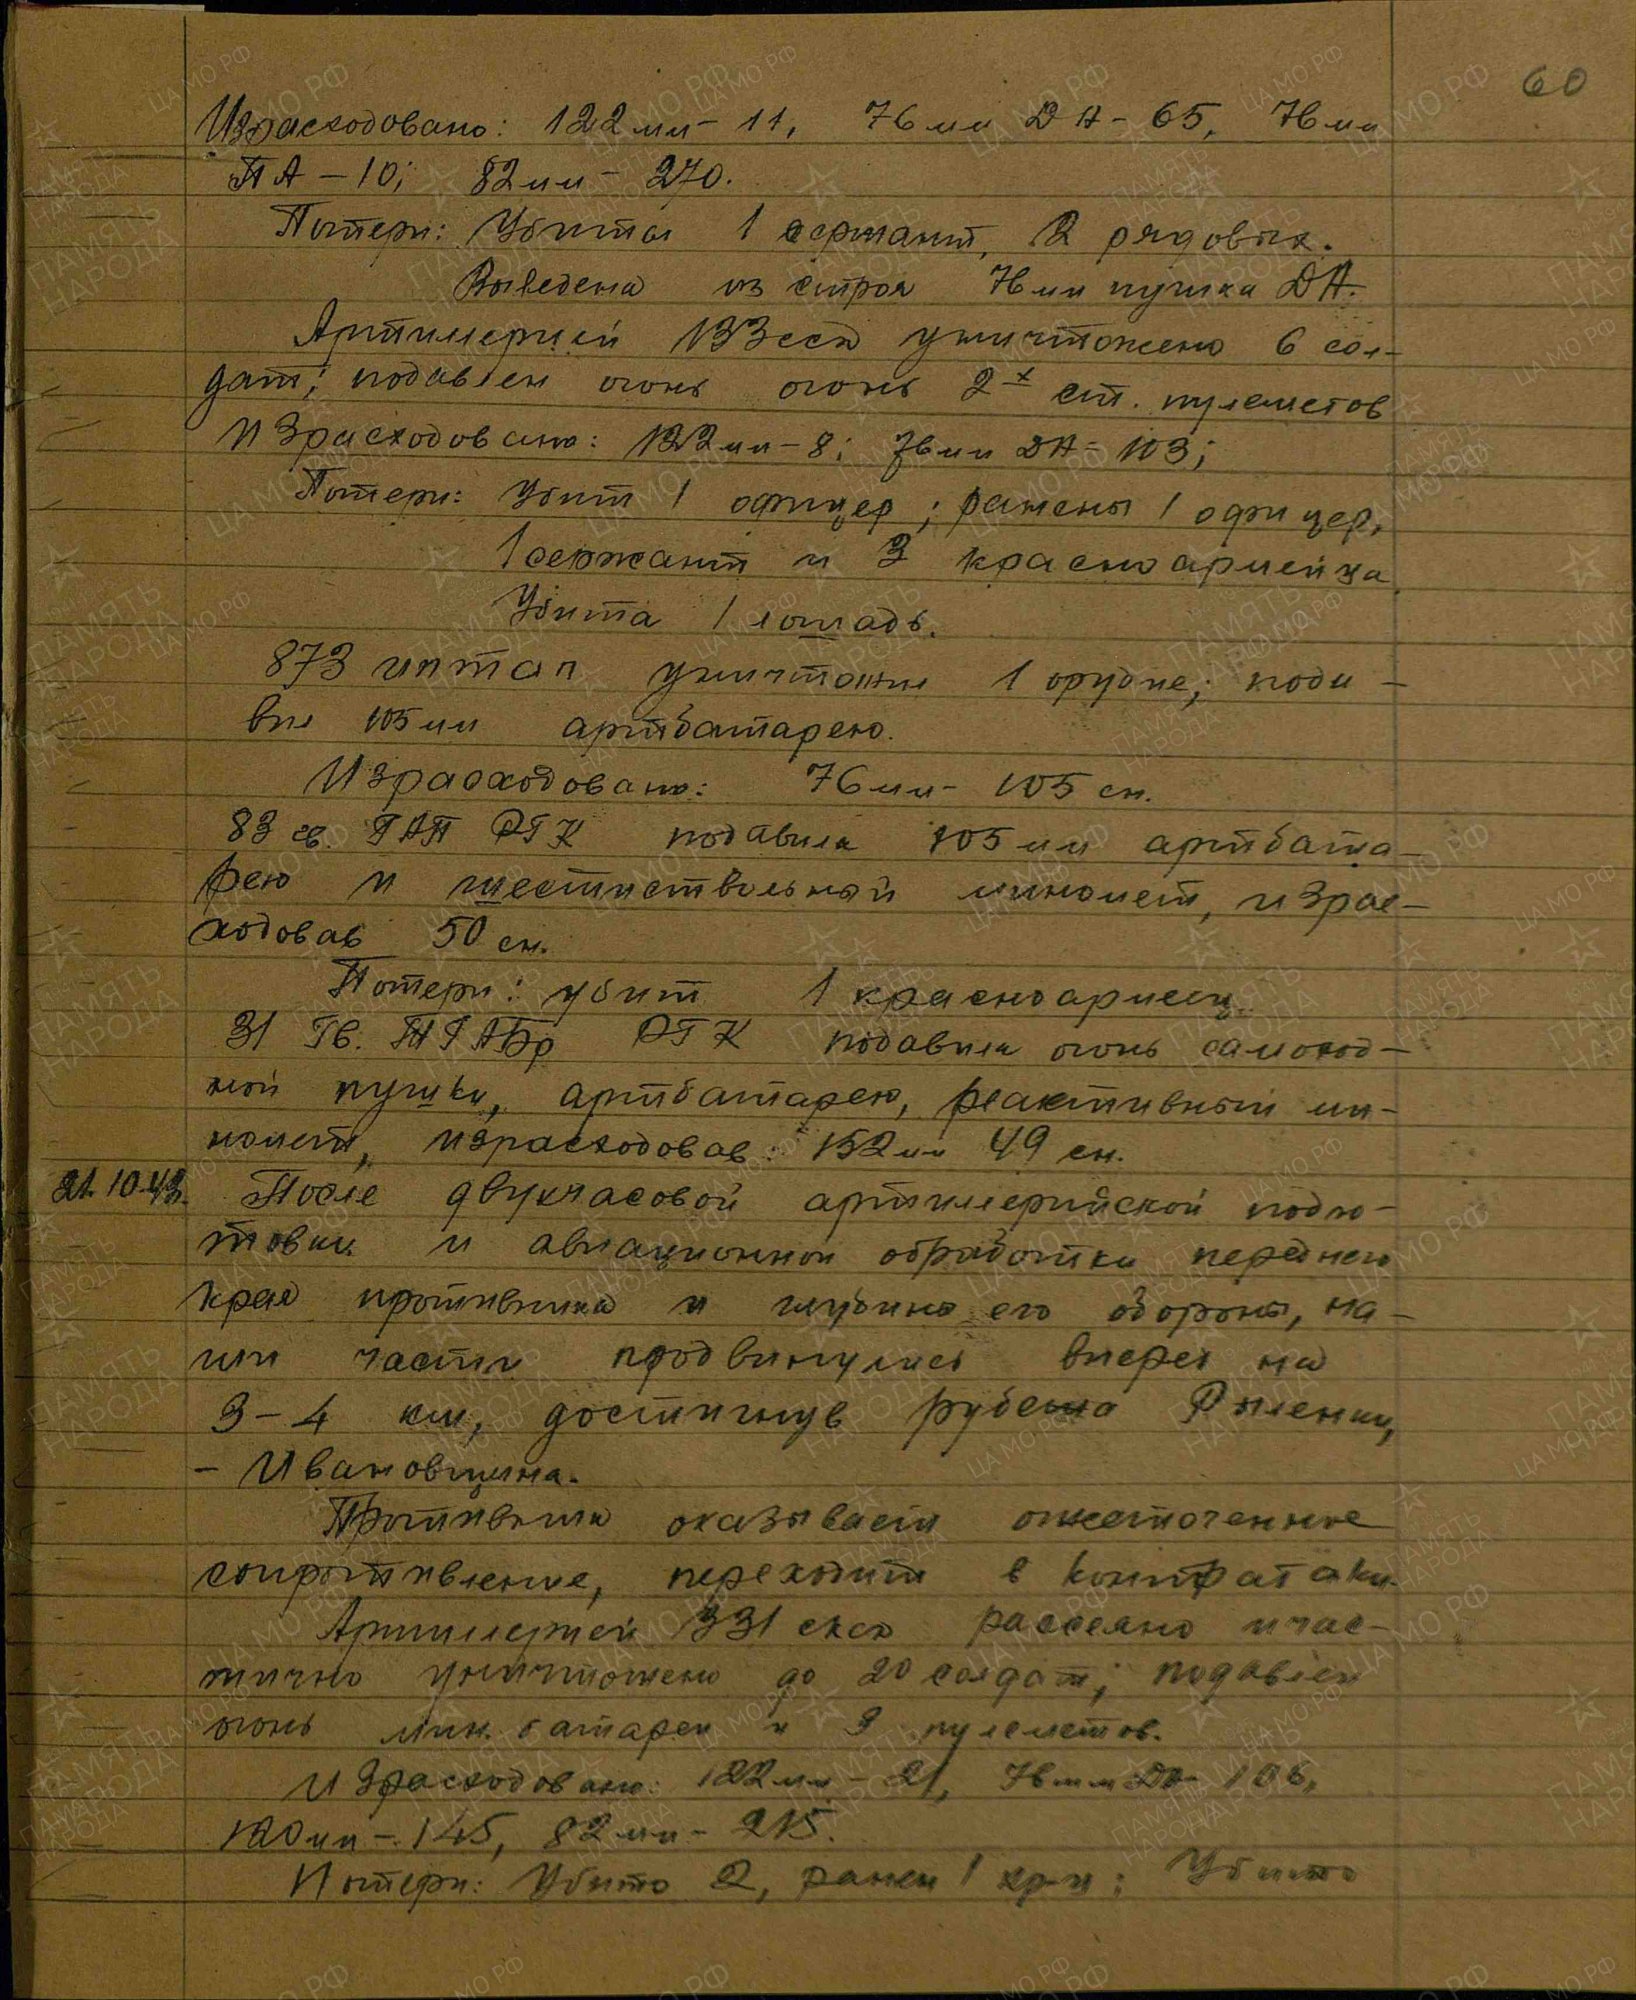 60
Израсходовано: 122 мм - 11, 76 мм ДА - 65, 76 мм
ПА - 10; 82 мм - 270.
Потери: Убиты 1 сержант, 2 рядовых.
Выведена из строя 76 мм пушка ДА.
Артиллерией 133 ссд уничтожено 6 сол-
дат; подавлен огонь огонь 2х ст. пулеметов
Израсходовано: 122 мм - 8; 76 мм ДА - 103;
Потери: Убит 1 офицер; ранены 1 офицер,
1 сержант и 3 красноармейца
Убита 1 лошадь.
873 иптап уничтожил 1 орудие; пода-
вил 105 мм артбатарею.
Израсходовано: 76 мм - 105 сн.
83 гв. ГАП РГК подавил 105 мм артбата-
рею и шестиствольный миномет, израс-
ходовав 50 сн.
Потери: убит 1 красноармеец.
31 Гв. ТГАБр РГК подавила огонь самоход-
ной пушки, артбатарею, реактивный ми-
номет, израсходовав 152 мм 49 сн.
21.10.43. После двухчасовой артиллерийской подго-
товки и авиационной обработки переднего
края противника и глубины его обороны, на-
ши части продвинулись вперед на
3-4 км, достигнув рубежа Рыленки,
- Ивановщина.
Противник оказывает ожесточенное
сопротивление, переходит в контратаки.
Артиллерией 331 сксд рассеяно и час-
тично уничтожено до 20 солдат; подавлен
огонь мин. батареи и 3 пулеметов.
Израсходовано: 122 мм - 21, 76 мм ДА - 106,
120 мм - 145, 82 мм - 215.
Потери: Убито 2, ранен 1 кр-ц; Убито